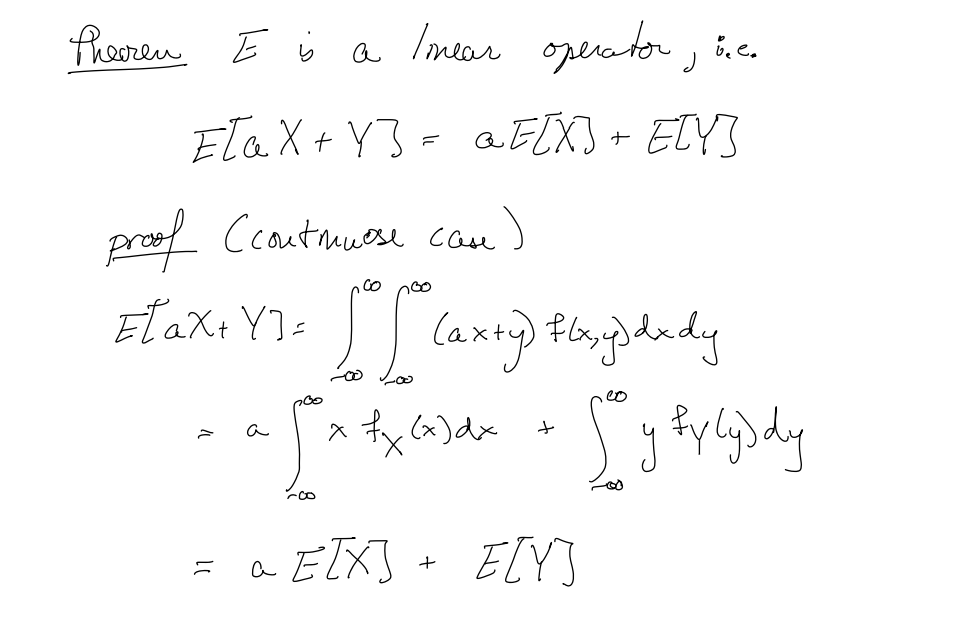 Theorem E is a linear operator, i.e.
E[aX + Y] = aE[X] + E[Y]
proof (continuose case)
E[aX + Y] = ∫_{-∞}^{∞} ∫_{-∞}^{∞} (ax+y) f(x,y) dx dy
= a ∫_{-∞}^{∞} x f_X(x) dx + ∫_{-∞}^{∞} y f_Y(y) dy
= a E[X] + E[Y]